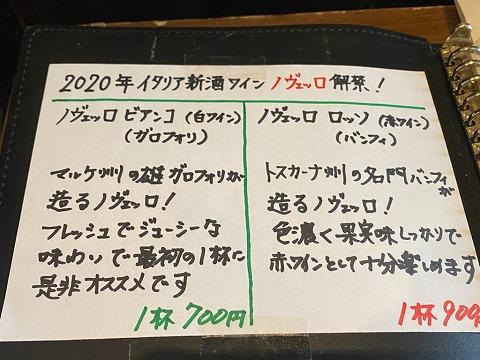 2020年イタリア新酒ワイン ノヴェッロ 解禁!
ノヴェッロ ビアンコ (白ワイン)
(ガロフォリ)
マルケ州の雄ガロフォリが
造るノヴェッロ!
フレッシュでジューシーな
味わいで最初の1杯に
是非オススメです
1杯 700円
ノヴェッロ ロッソ (赤ワイン)
(バンフィ)
トスカーナ州の名門バンフィが
造るノヴェッロ!
色濃く果実味しっかりで
赤ワインとして十分楽しめます
1杯 900円